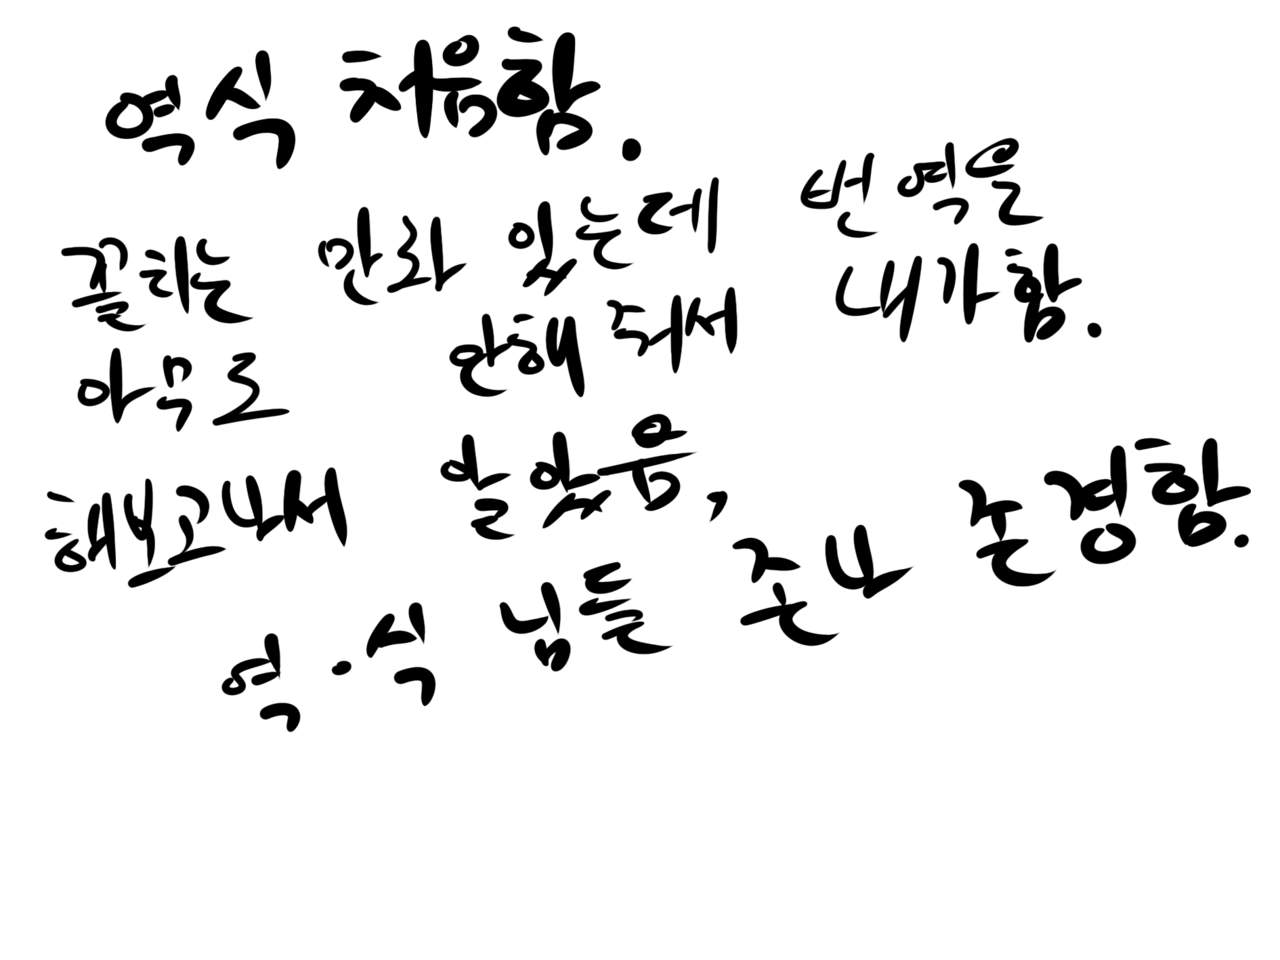 역식 처음함.
꼴리는 만화 있는데 번역을
아무도 안해줘서 내가함.
해보고나서 알았음,
역·식 님들 존나 존경함.